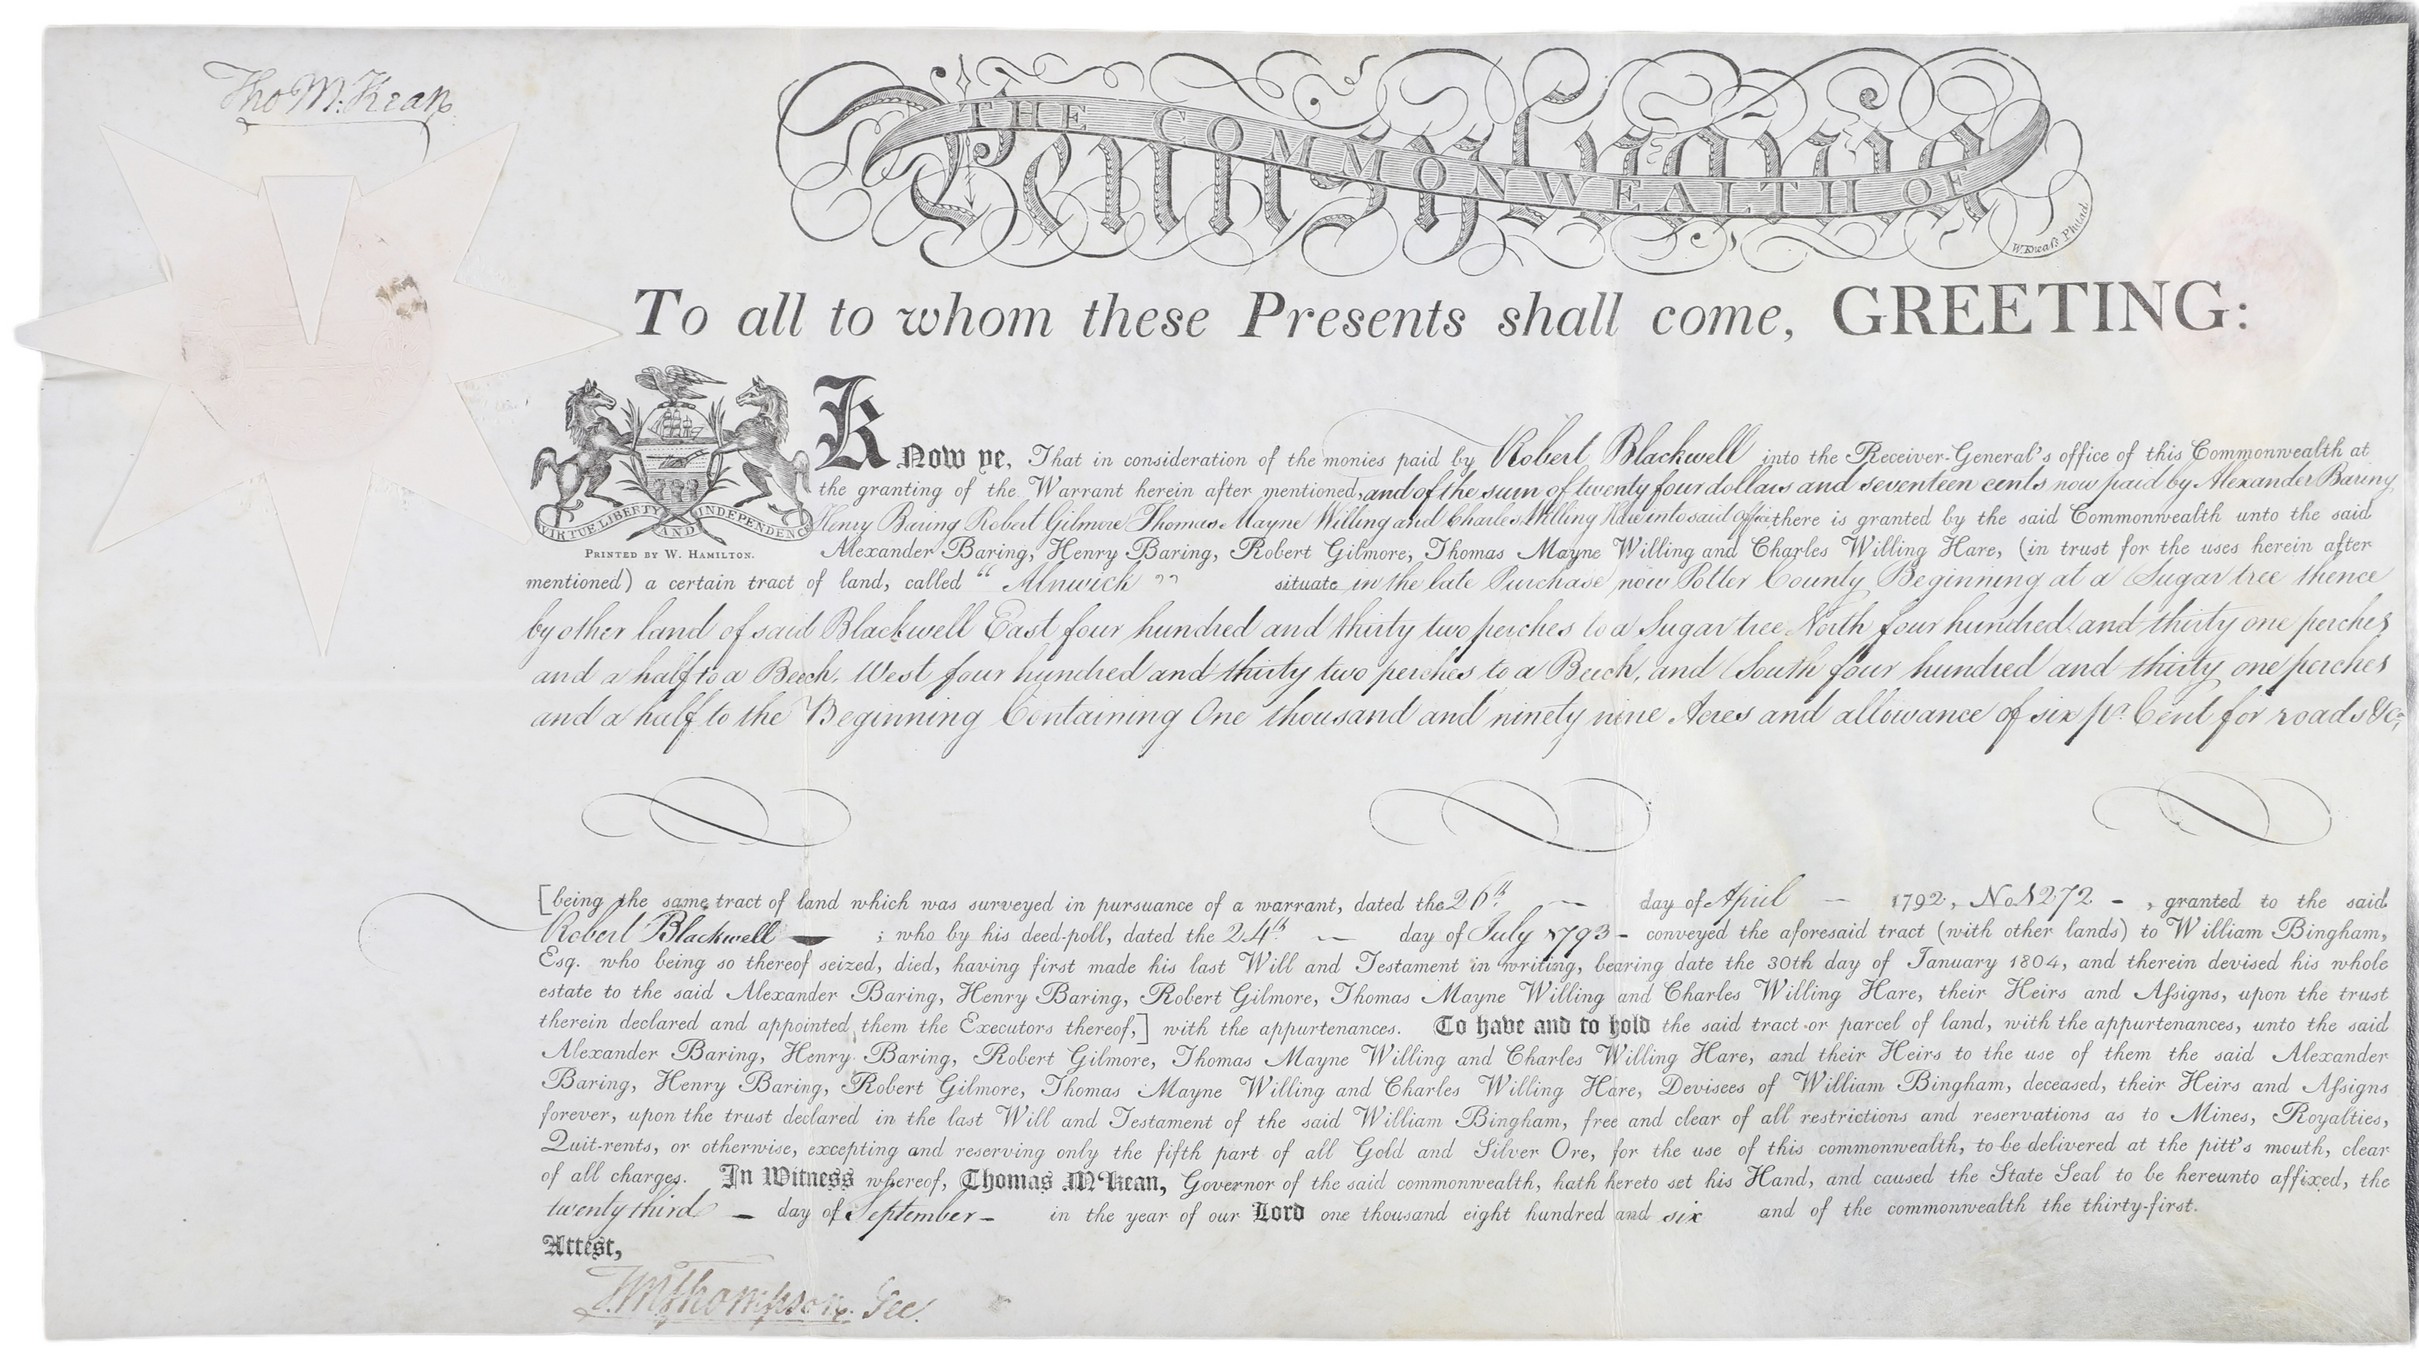 Tho M:Kean
THE COMMONWEALTH OF
Pennsylvania
W. Kneaſs Philad.
To all to whom these Presents shall come, GREETING:
KNow ye, That in consideration of the monies paid by Robert Blackwell into the Receiver-General's office of this Commonwealth at
the granting of the Warrant herein after mentioned, and of the sum of twenty four dollars and seventeen cents now paid by Alexander Baring
Henry Baring Robert Gilmore Thomas Mayne Willing and Charles Willing Hare into said office there is granted by the said Commonwealth unto the said
VIRTUE LIBERTY AND INDEPENDENCE
PRINTED BY W. HAMILTON.
Alexander Baring, Henry Baring, Robert Gilmore, Thomas Mayne Willing and Charles Willing Hare, (in trust for the uses herein after
mentioned) a certain tract of land, called "Alnwick" situate in the late Purchase now Potter County Beginning at a Sugar tree thence
by other land of said Blackwell East four hundred and thirty two perches to a Sugar tree North four hundred and thirty one perches
and a half to a Beech, West four hundred and thirty two perches to a Beech, and South four hundred and thirty one perches
and a half to the Beginning Containing One thousand and ninety nine Acres and allowance of six pr. Cent for roads &c.
[being the same tract of land which was surveyed in pursuance of a warrant, dated the 26th. day of April 1792, No 1272 -, granted to the said
Robert Blackwell — ; who by his deed-poll, dated the 24th — day of July 1793 - conveyed the aforesaid tract (with other lands) to William Bingham,
Esq. who being so thereof seized, died, having first made his last Will and Testament in writing, bearing date the 30th day of January 1804, and therein devised his whole
estate to the said Alexander Baring, Henry Baring, Robert Gilmore, Thomas Mayne Willing and Charles Willing Hare, their Heirs and Aſsigns, upon the trust
therein declared and appointed them the Executors thereof,] with the appurtenances. To have and to hold the said tract or parcel of land, with the appurtenances, unto the said
Alexander Baring, Henry Baring, Robert Gilmore, Thomas Mayne Willing and Charles Willing Hare, and their Heirs to the use of them the said Alexander
Baring, Henry Baring, Robert Gilmore, Thomas Mayne Willing and Charles Willing Hare, Devisees of William Bingham, deceased, their Heirs and Aſsigns
forever, upon the trust declared in the last Will and Testament of the said William Bingham, free and clear of all restrictions and reservations as to Mines, Royalties,
Quit-rents, or otherwise, excepting and reserving only the fifth part of all Gold and Silver Ore, for the use of this commonwealth, to be delivered at the pitt's mouth, clear
of all charges. In Witness whereof, Thomas M'Kean, Governor of the said commonwealth, hath hereto set his Hand, and caused the State Seal to be hereunto affixed, the
twenty third — day of September - in the year of our Lord one thousand eight hundred and six and of the commonwealth the thirty-first.
Attest,
T.M Thompson. Sec.